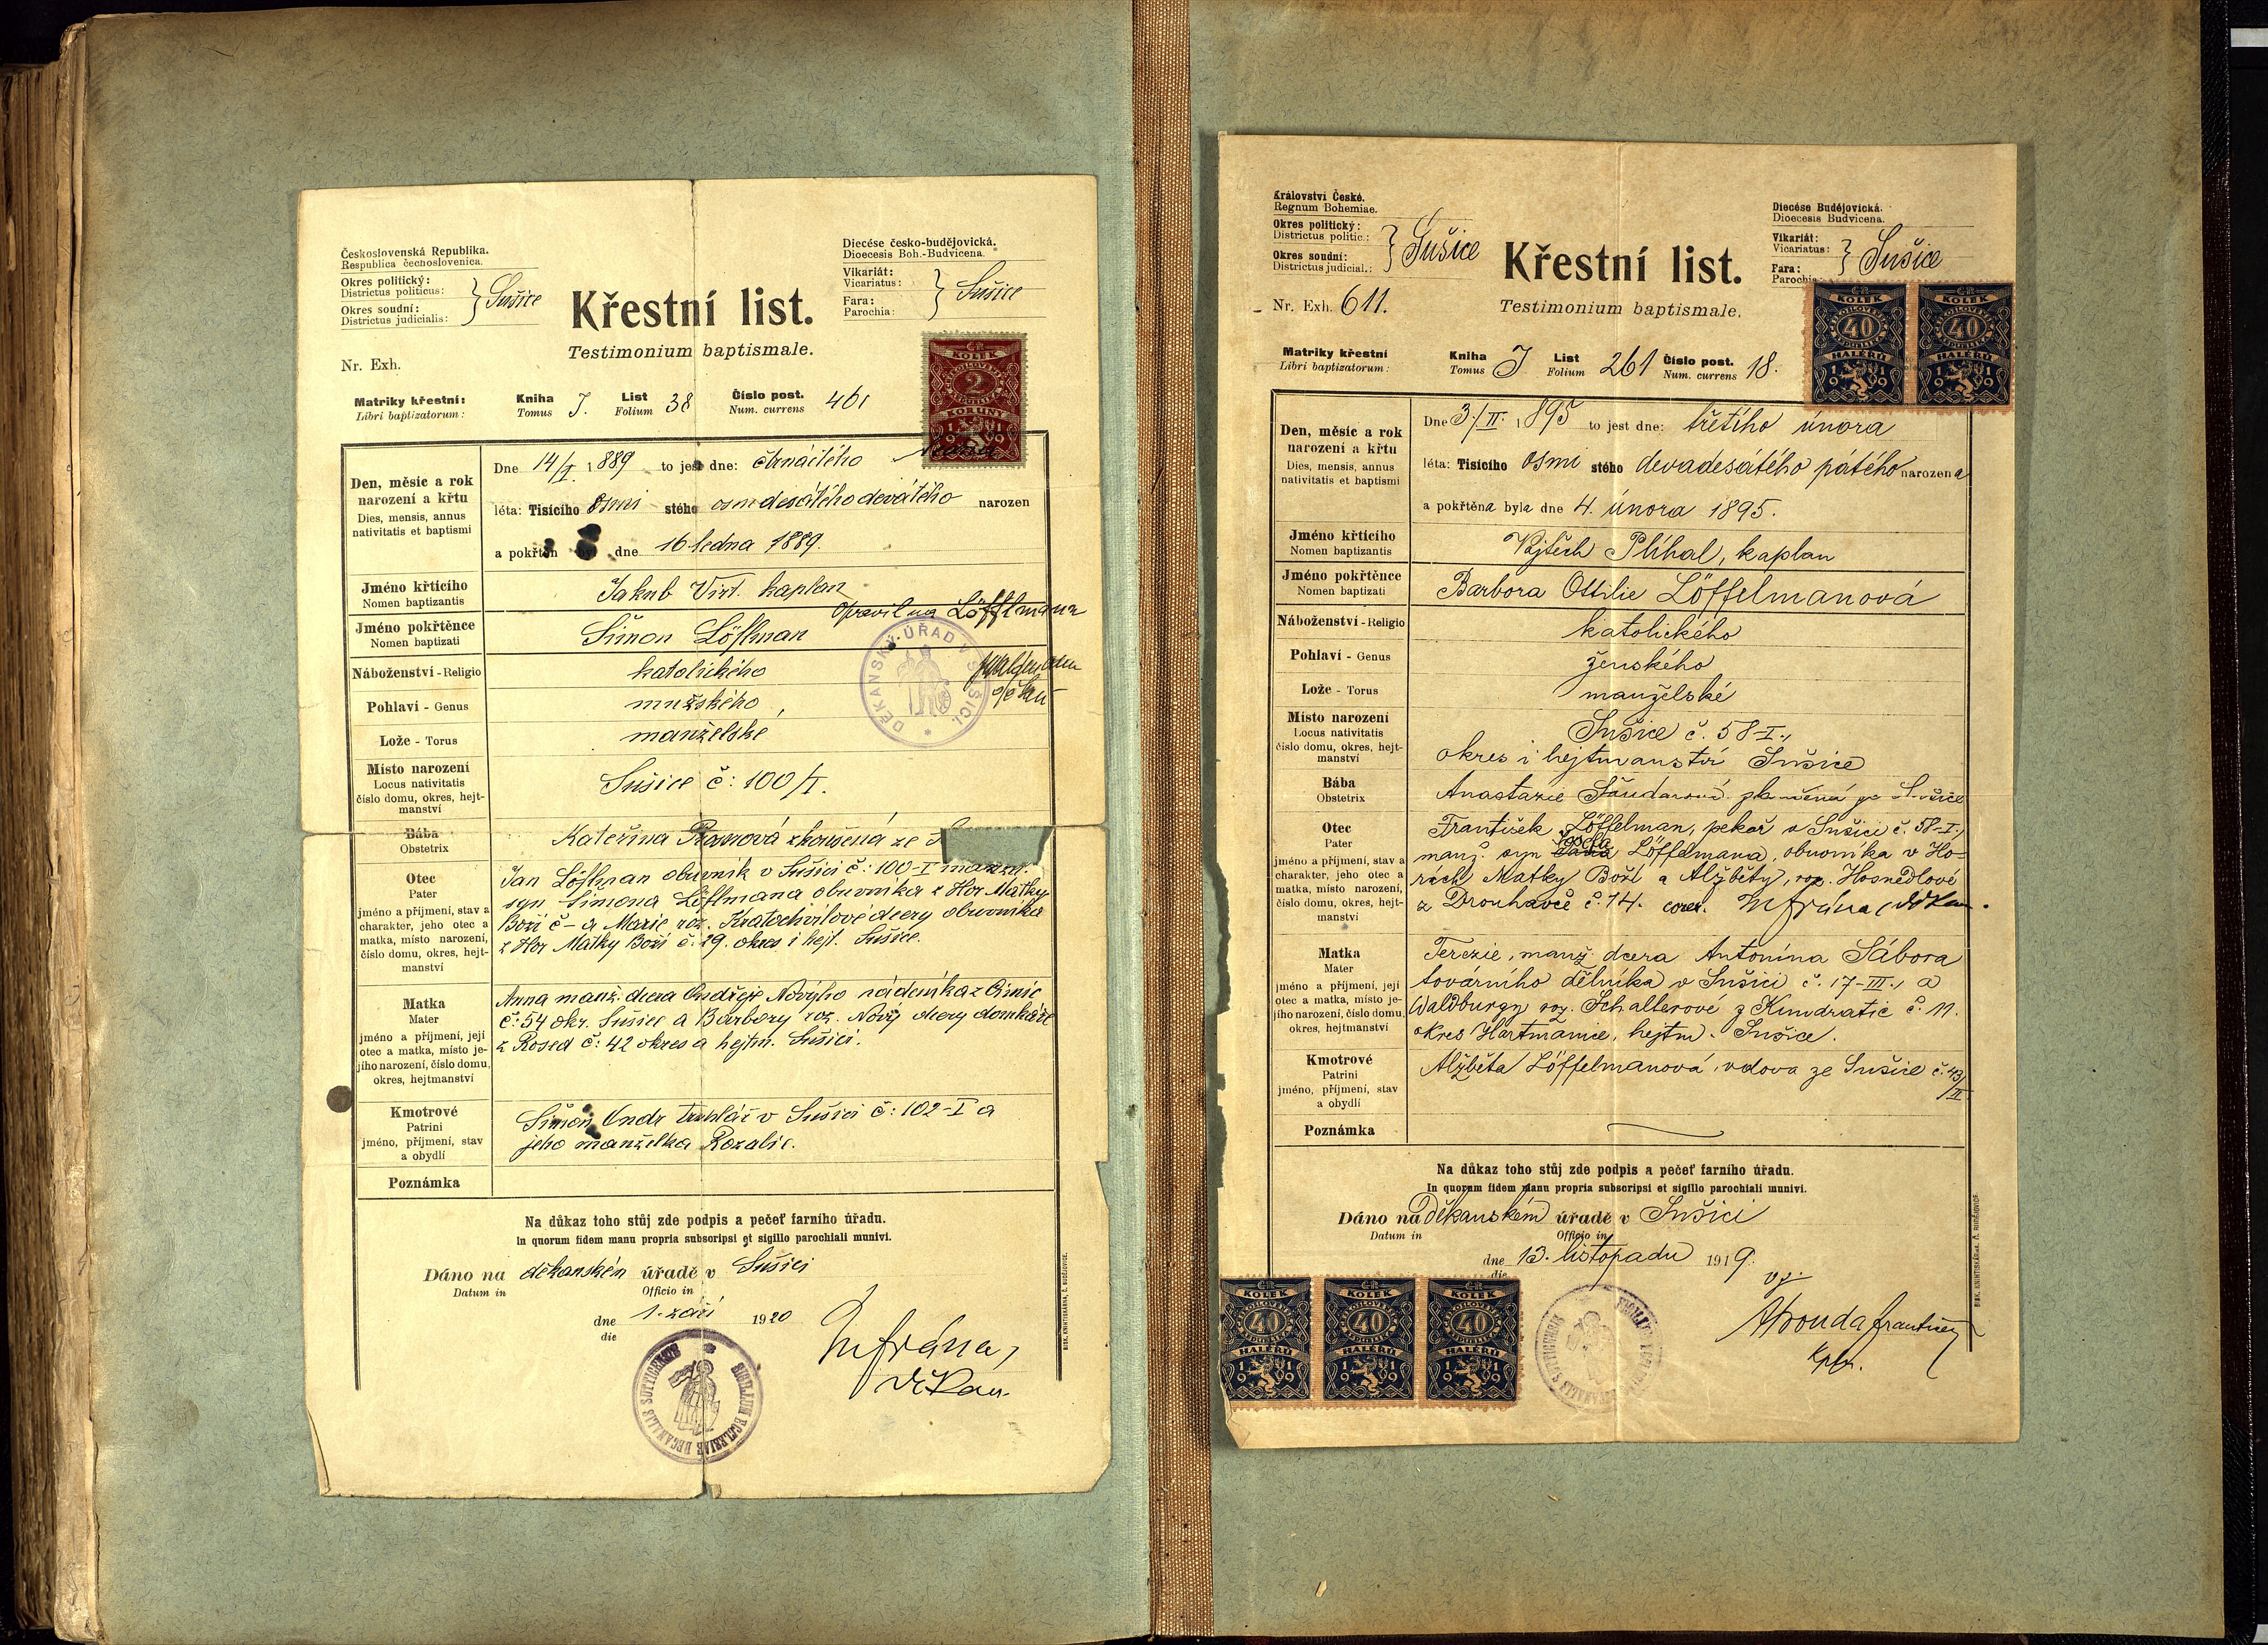 Československá Republika.
Respublica čechoslovenica.
Okres politický:
Districtus politicus:
Okres soudní:
Districtus judicialis:
Sušice
Křestní list.
Testimonium baptismale.
Diecése česko-budějovická.
Dioecesis Boh.-Budvicena.
Vikariát:
Vicariatus:
Fara:
Parochia:
Sušice
Nr. Exh.
ČR
KOLEK
2
KORUNY
1919
Matriky křestní: Kniha I. List 38 Číslo post. 461
Libri baptizatorum: Tomus Folium Num. currens
Den, měsíc a rok narození a křtu
Dies, mensis, annus nativitatis et baptismi
Dne 14/I. 1889 to jest dne: čtrnáctého ledna
léta: Tisícího osmi stého osmdesátého devátého narozen
a pokřtěn byl dne 16. ledna 1889.
Jméno křtícího
Nomen baptizantis
Jakub Virt. kaplan
Opravil na Löfflmana
Jméno pokřtěnce
Nomen baptizati
Šimon Löflman
DĚKANSKÝ ÚŘAD V SUŠICI.
Náboženství - Religio
katolického
Pohlaví - Genus
mužského
Lože - Torus
manželské
Místo narození
Locus nativitatis
číslo domu, okres, hejtmanství
Sušice č: 100/I.
Bába
Obstetrix
Kateřina zkoušená ze
Otec
Pater
jméno a příjmení, stav a charakter, jeho otec a matka, místo narození, číslo domu, okres, hejtmanství
Jan Löflman obuvník v Sušici č: 100-I manžel.
syn Šimona Löflmana obuvníka z Hor Matky
Boží č - a Marie roz. Kratochvílové dcery obuvníka
z Hor Matky Boží č. 29. okres i hejt. Sušice.
Matka
Mater
jméno a příjmení, její otec a matka, místo jejího narození, číslo domu, okres, hejtmanství
Anna manž. dcera Ondřeje Nového nádeníka z
č: 54 okr. Sušice a Barbory roz. Nový dcery domkáře
z Rosed č: 42 okres a hejtm. Sušici.
Kmotrové
Patrini
jméno, příjmení, stav a obydlí
Šimon Ondr truhlář v Sušici č: 102-I a
jeho manželka Rozalie.
Poznámka
Na důkaz toho stůj zde podpis a pečeť farního úřadu.
In quorum fidem manu propria subscripsi et sigillo parochiali munivi.
Dáno na děkanském úřadě v Sušici
Datum in Officio in
dne 1. září 1920
die
děkan
SIGILLUM ECCLESIAE DECANALIS SUTTICENSIS
BISK. KNIHTISKÁRNA, Č. BUDĚJOVICE.
Království České.
Regnum Bohemiae.
Okres politický:
Districtus politic.:
Okres soudní:
Districtus judicial.:
Sušice
Nr. Exh. 611.
Křestní list.
Testimonium baptismale.
Diecése Budějovická.
Dioecesis Budvicena.
Vikariát:
Vicariatus:
Fara:
Parochia:
Sušice
ČR KOLEK 40 HALÉŘŮ 1919
ČR KOLEK 40 HALÉŘŮ 1919
Matriky křestní Kniha I List 261 Číslo post. 18.
Libri baptizatorum: Tomus Folium Num. currens
Den, měsíc a rok narození a křtu
Dies, mensis, annus nativitatis et baptismi
Dne 3./II. 1895 to jest dne: třetího února
léta: Tisícího osmi stého devadesátého pátého narozena
a pokřtěna byla dne 4. února 1895.
Jméno křtícího
Nomen baptizantis
Vojtěch Plíhal, kaplan
Jméno pokřtěnce
Nomen baptizati
Barbora Ottilie Löffelmanová
Náboženství - Religio
katolického
Pohlaví - Genus
ženského
Lože - Torus
manželské
Místo narození
Locus nativitatis
číslo domu, okres, hejtmanství
Sušice č. 58-I.,
okres i hejtmanství Sušice
Bába
Obstetrix
Anastazie zkoušená ze Sušice
Otec
Pater
jméno a příjmení, stav a charakter, jeho otec a matka, místo narození, číslo domu, okres, hejtmanství
František Löffelman, pekař v Sušici č. 58-I.,
manž. syn Josefa Löffelmana, obuvníka v Ho-
rách Matky Boží a Alžběty, roz. Hosnedlové
z Drouhavče č. 14. corr. děkan.
Matka
Mater
jméno a příjmení, její otec a matka, místo jejího narození, číslo domu, okres, hejtmanství
Terezie, manž. dcera Antonína Sábora
továrního dělníka v Sušici č. 17-III., a
Waldburgy roz. Schallerové z Kundratic č. 11.
okres Hartmanice, hejtm. Sušice.
Kmotrové
Patrini
jméno, příjmení, stav a obydlí
Alžběta Löffelmanová, vdova ze Sušice č. 43/II.
Poznámka
Na důkaz toho stůj zde podpis a pečeť farního úřadu.
In quorum fidem manu propria subscripsi et sigillo parochiali munivi.
Dáno na Děkanském úřadě v Sušici
Datum in Officio in
dne 13. listopadu 1919.
die
František
kpln.
ČR KOLEK 40 HALÉŘŮ 1919
ČR KOLEK 40 HALÉŘŮ 1919
ČR KOLEK 40 HALÉŘŮ 1919
BISK. KNIHTISKÁRNA, Č. BUDĚJOVICE.